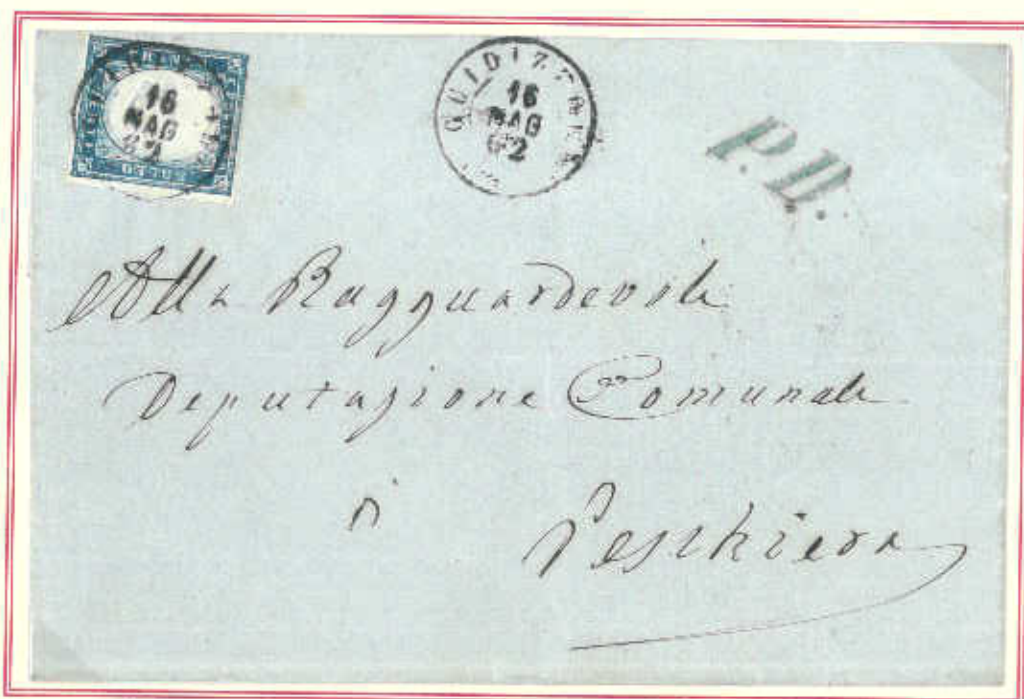 16
MAG
62
GUIDIZZOLO
16
MAG
62
P.D.
Alla Ragguardevole
Deputazione Comunale
di
Peschiera